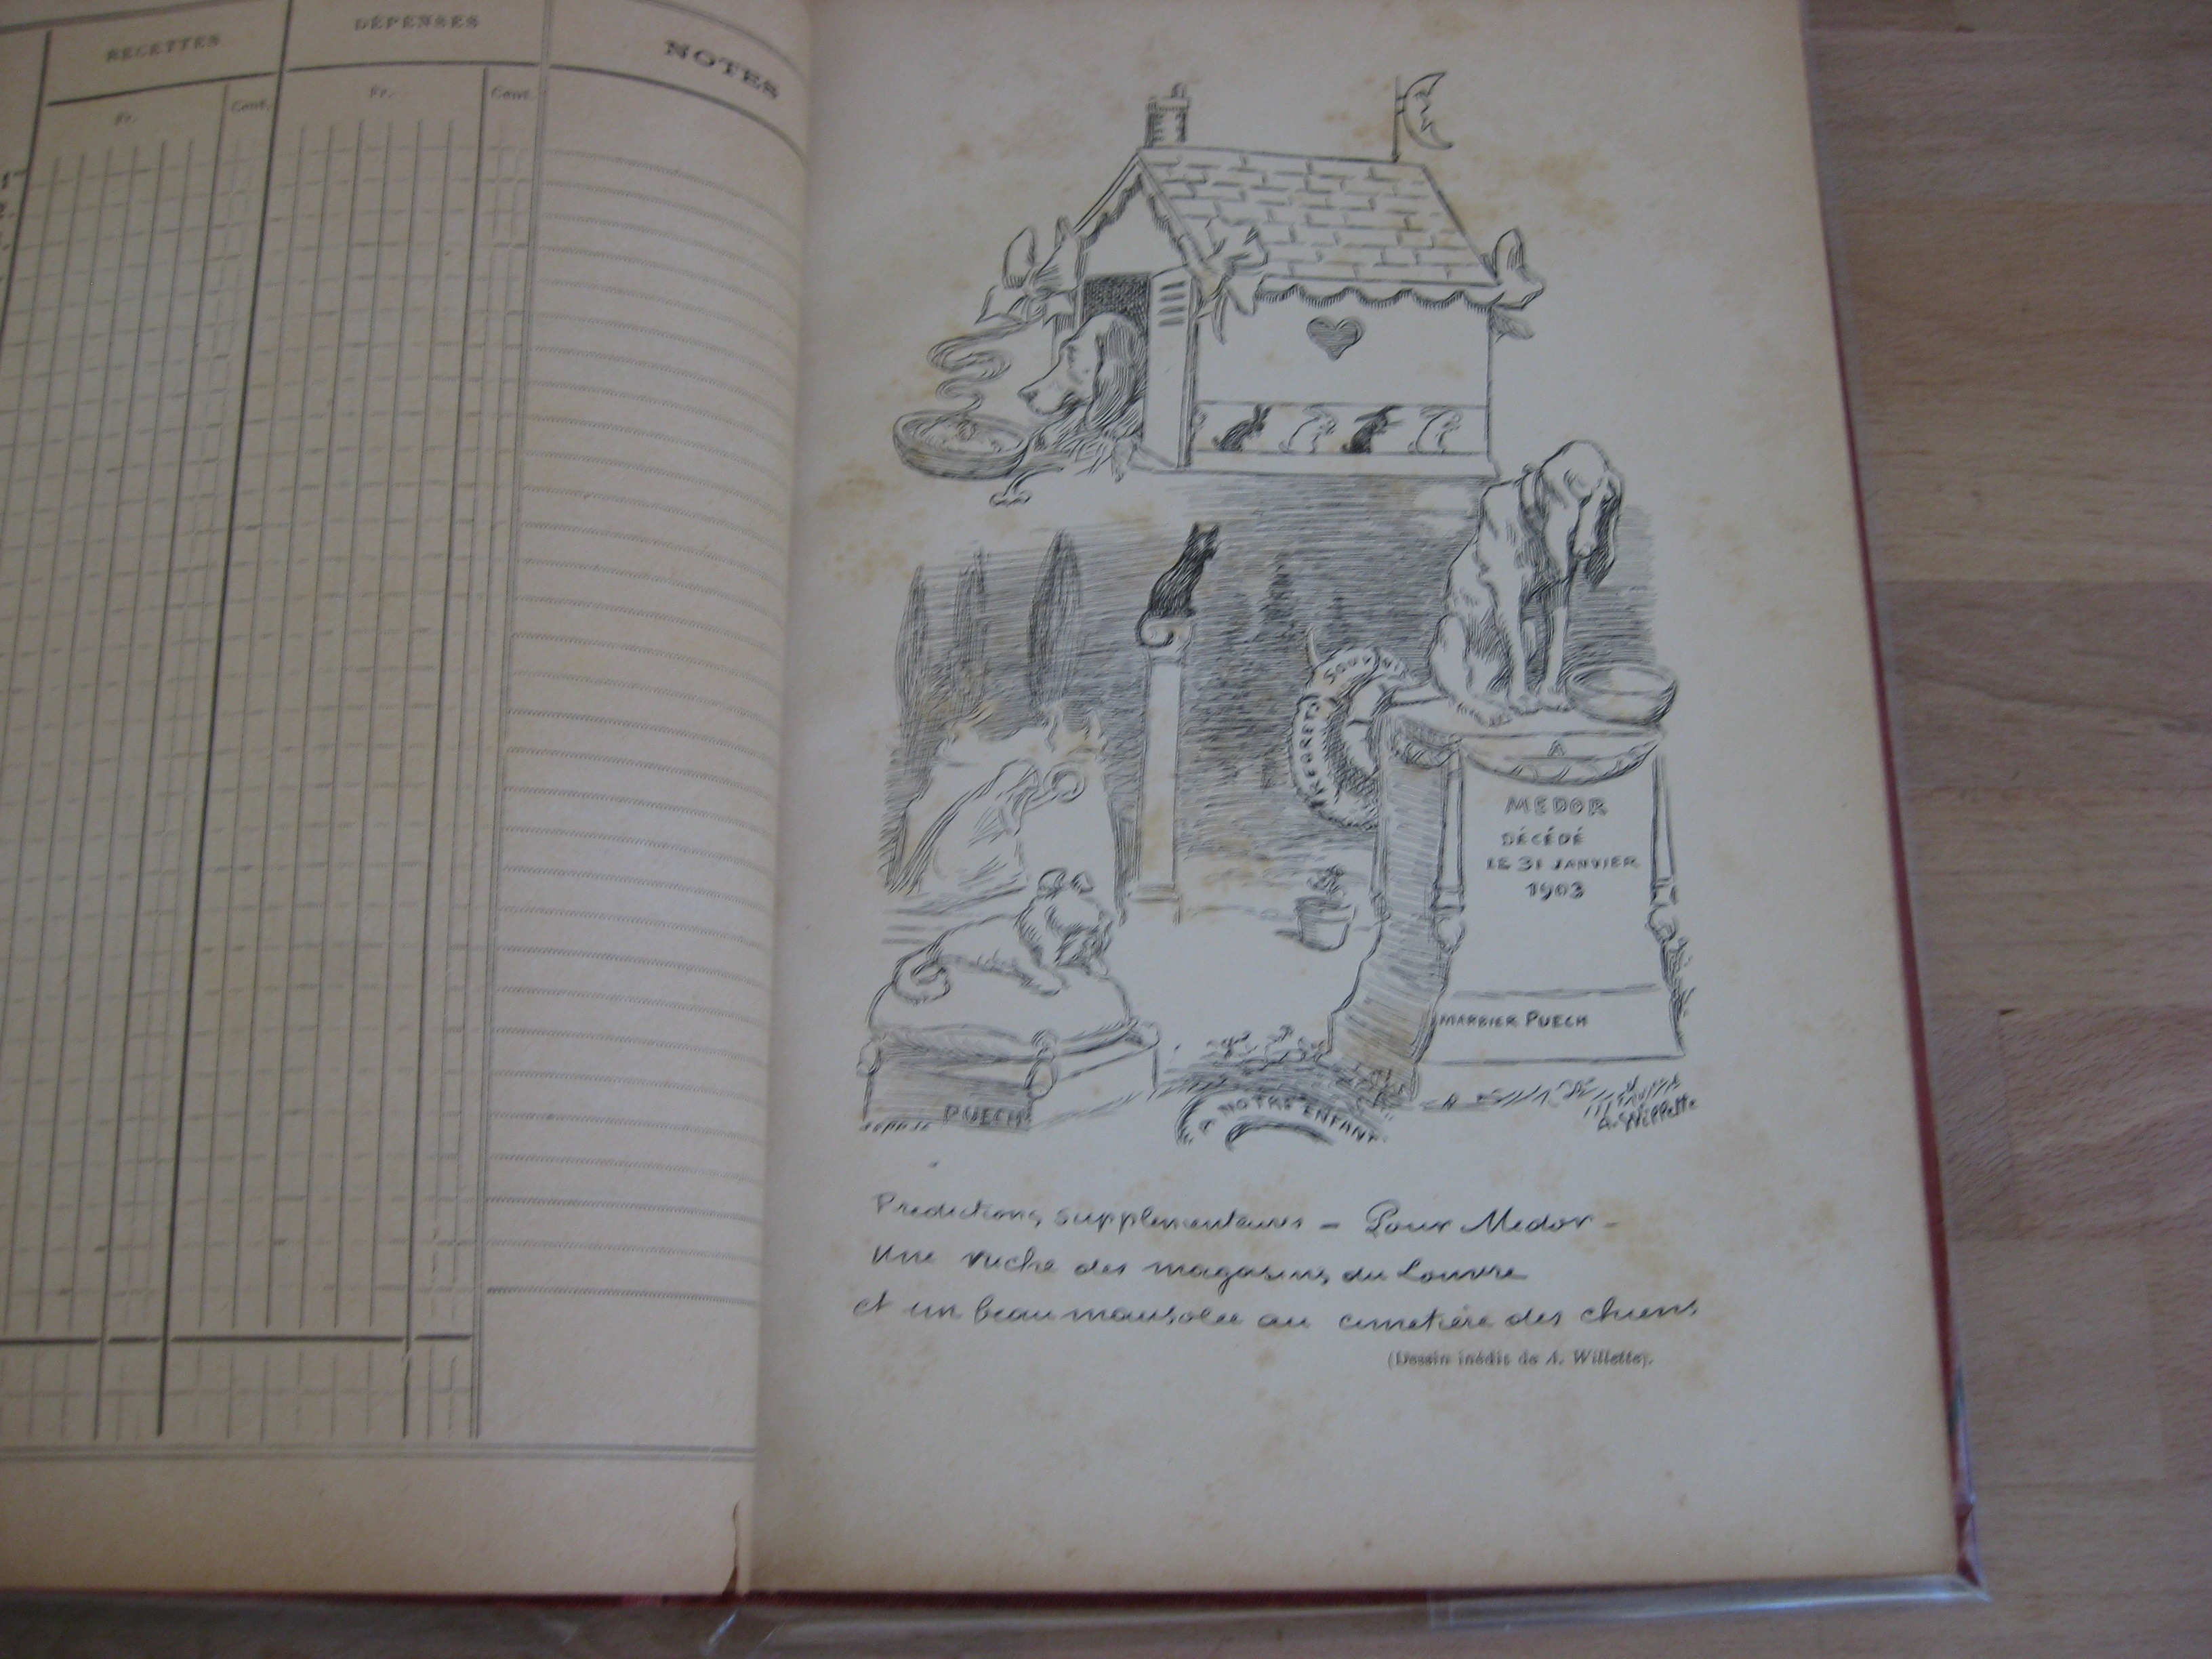 RECETTES
DÉPENSES
NOTES
Fr.
Cent.
Fr.
Cent.
1
2
SOUVENIR
REGRETS
MEDOR
DÉCÉDÉ
LE 31 JANVIER
1903
MARBIER PUECH
PUECH
A NOTRE ENFANT
A. Willette
Predictions supplementaires - Pour Medor -
Une niche des magasins du Louvre
et un beau mausolée au cimetière des chiens
(Dessin inédit de A. Willette).